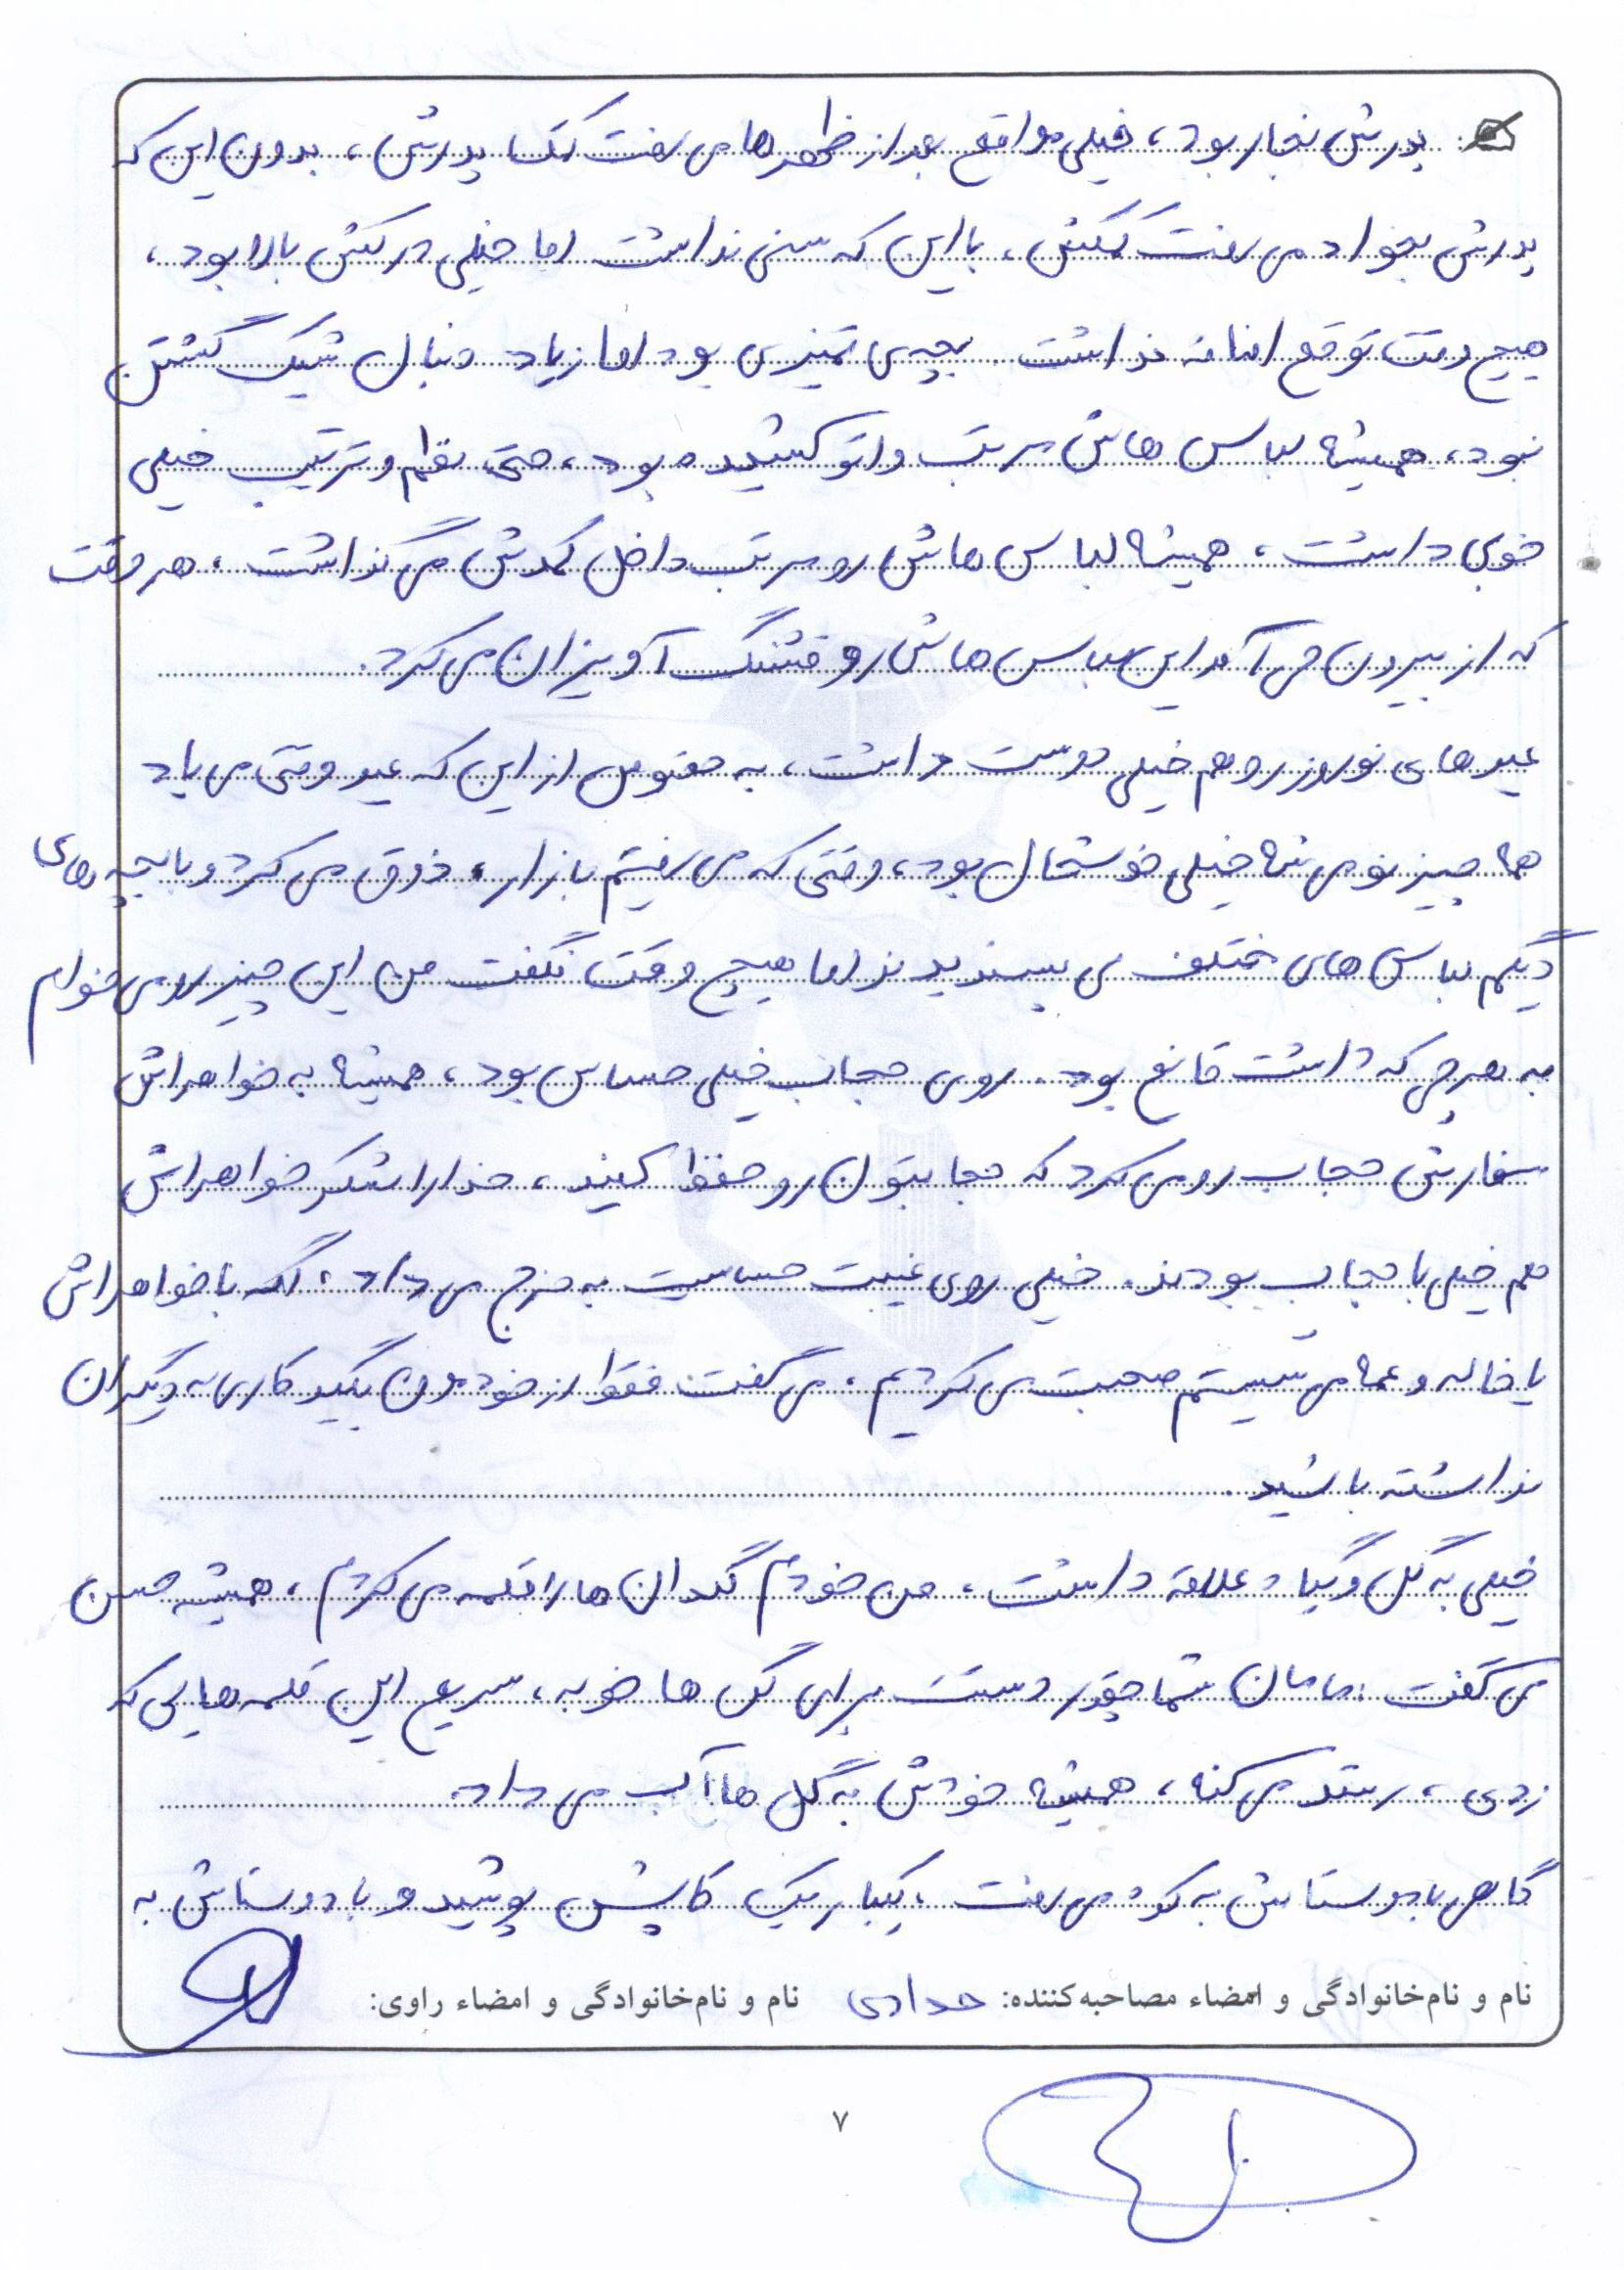 پدرش نجار بود، خیلی مواقع بعد از ظهرها می رفت کمک پدرش، بدون این که
پدرش بخواد می رفت کمکش، با این که سنی نداشت اما خیلی درکش بالا بود،
هیچ وقت توقع اضافه نداشت. بچه ی تمیزی بود اما زیاد دنبال شیک گشتن
نبود، همیشه لباس هاش مرتب و اتو کشیده بود، حتی نظم و ترتیب خیلی
خوبی داشت، همیشه لباس هاش رو مرتب داخل کمدش می گذاشت، هر وقت
که از بیرون می آمد این لباس هاش رو قشنگ آویزان می کرد.
عیدهای نوروز رو هم خیلی دوست داشت، به خصوص از این که عید وقتی می یاد
همه چیز نو می شه خیلی خوشحال بود، وقتی که می رفتیم بازار، ذوق می کرد و با بچه های
دیگم لباس های مختلف می پسندیدند اما هیچ وقت نگفت من این چیز رو می خوام
به هرچی که داشت قانع بود. روی حجاب خیلی حساس بود، همیشه به خواهراش
سفارش حجاب رو می کرد که حجابتون رو حفظ کنید، خدا را شکر خواهراش
هم خیلی با حجاب بودند. خیلی روی غیبت حساسیت به خرج می داد، اگه با خواهراش
یا خاله و عمه می شستیم صحبت می کردیم، می گفت فقط از خودمون بگید کاری به دیگران
نداشته باشید.
خیلی به گل و گیاه علاقه داشت، من خودم گلدان ها را قلمه می کردم، همیشه حسن
می گفت: مامان شما چقدر دستت برای گل ها خوبه، سریع این قلمه هایی که
زدی، رشد می کنه، همیشه خودش به گل ها آب می داد.
گاهی با دوستاش به کوه می رفت، یکبار یک کاپشن پوشید و با دوستاش به
نام و نام‌خانوادگی و امضاء مصاحبه‌کننده: حدادی نام و نام‌خانوادگی و امضاء راوی:
۷